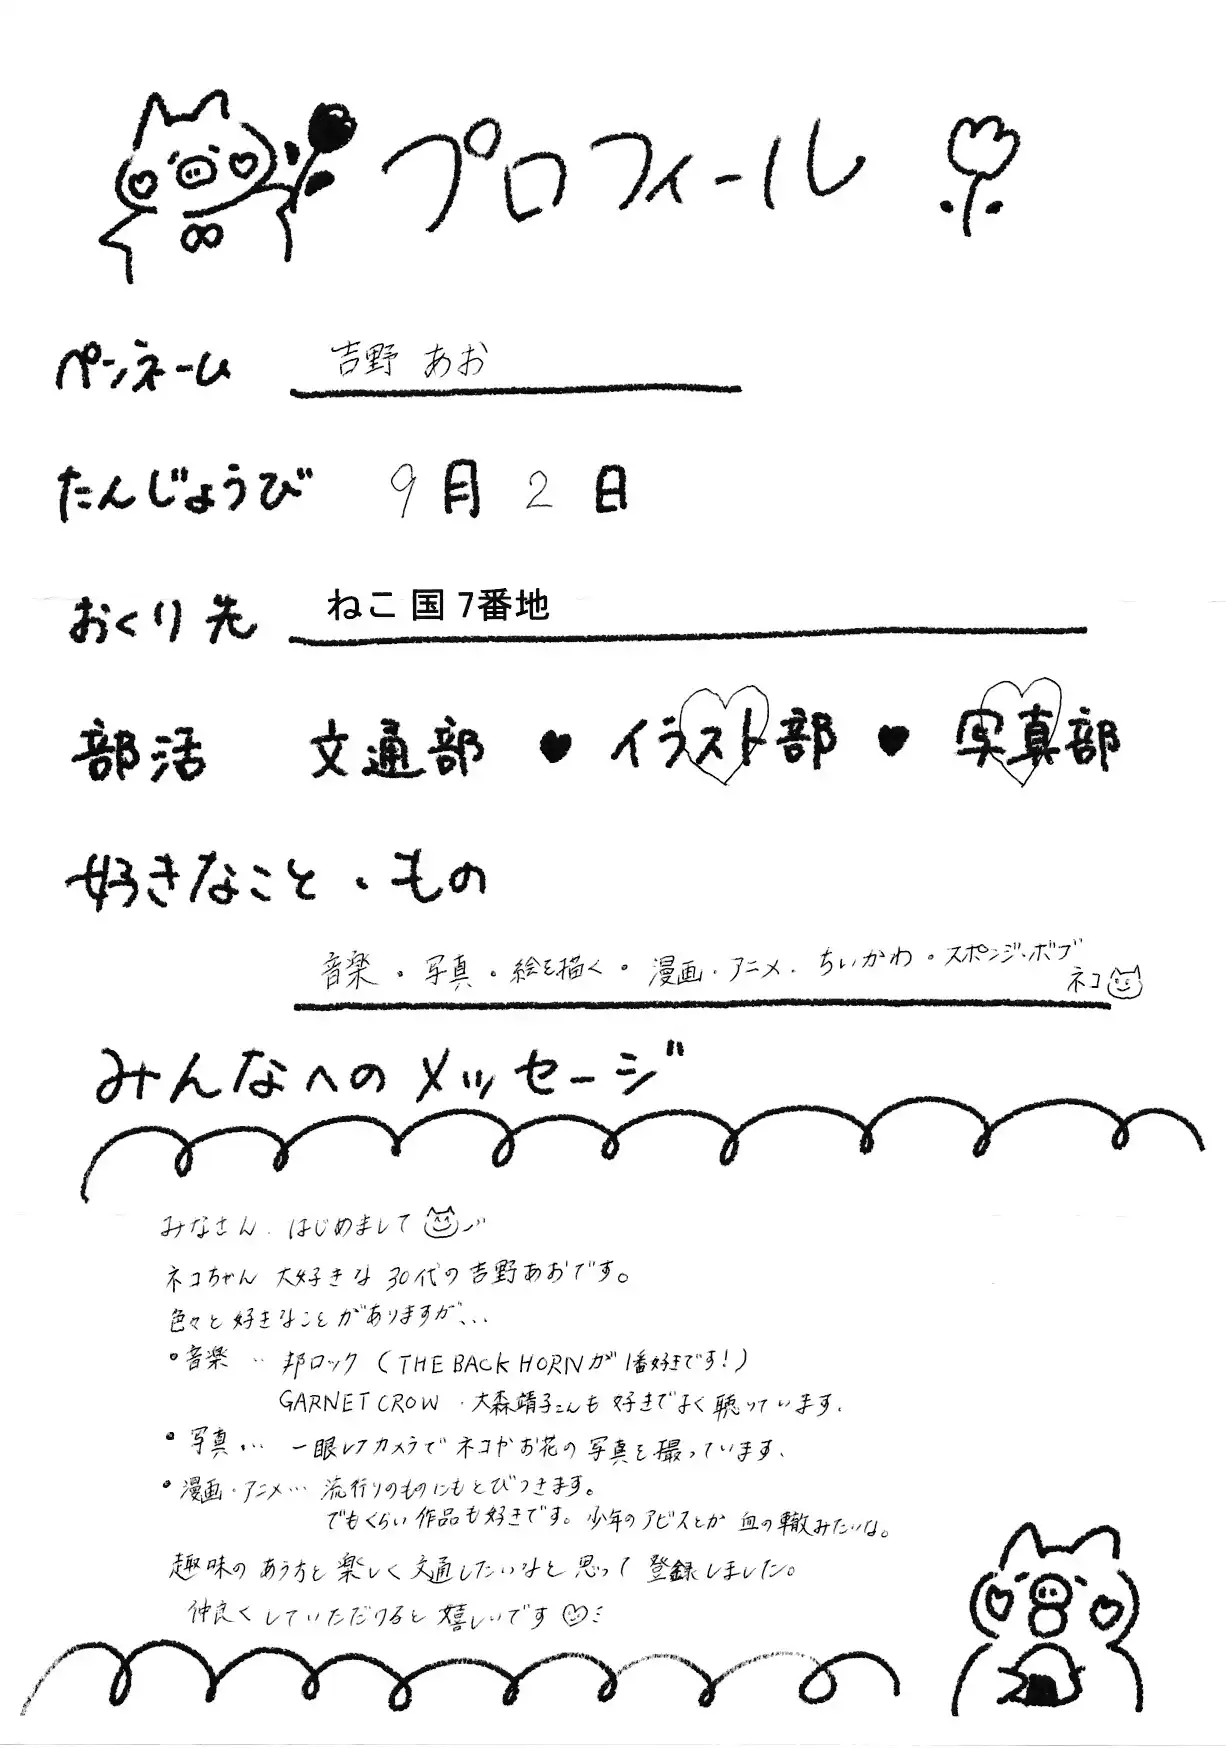 プロフィール
ペンネーム 吉野 あお
たんじょうび 9月2日
おくり先 ねこ国7番地
部活 文通部 ♥ イラスト部 ♥ 写真部
好きなこと・もの
音楽・写真・絵を描く・漫画・アニメ・ちいかわ・スポンジ・ボブ
ネコ
みんなへのメッセージ
みなさん、はじめまして
ネコちゃん大好きな30代の吉野あおです。
色々と好きなことがありますが、、、
・音楽‥邦ロック(THE BACK HORNが1番好きです!)
GARNET CROW・大森靖子さんも好きでよく聴いています、
・写真… 一眼レフカメラでネコやお花の写真を撮っています、
・漫画・アニメ…流行りのものにもとびつきます。
でもくらい作品も好きです。少年のアビスとか血の轍みたいな。
趣味のあう方と楽しく文通したいなと思って登録しました。
仲良くしていただけると嬉しいです